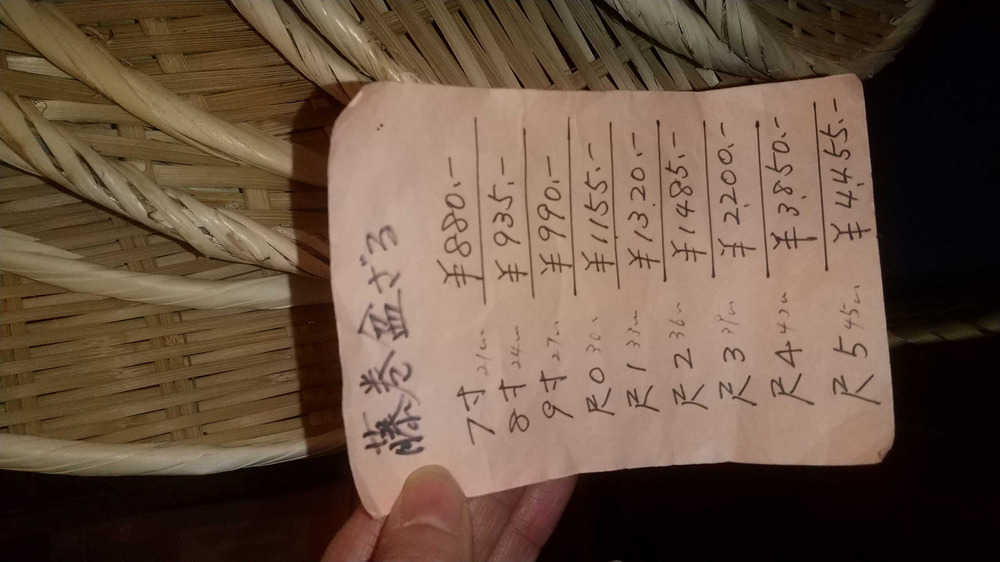 藤巻盆ざる
7寸 21cm ¥880.-
8寸 24cm ¥935.-
9寸 27cm ¥990.-
尺0 30cm ¥1155.-
尺1 33cm ¥1320.-
尺2 36cm ¥1485.-
尺3 39cm ¥2200.-
尺4 42cm ¥3,850.-
尺5 45cm ¥4,455.-